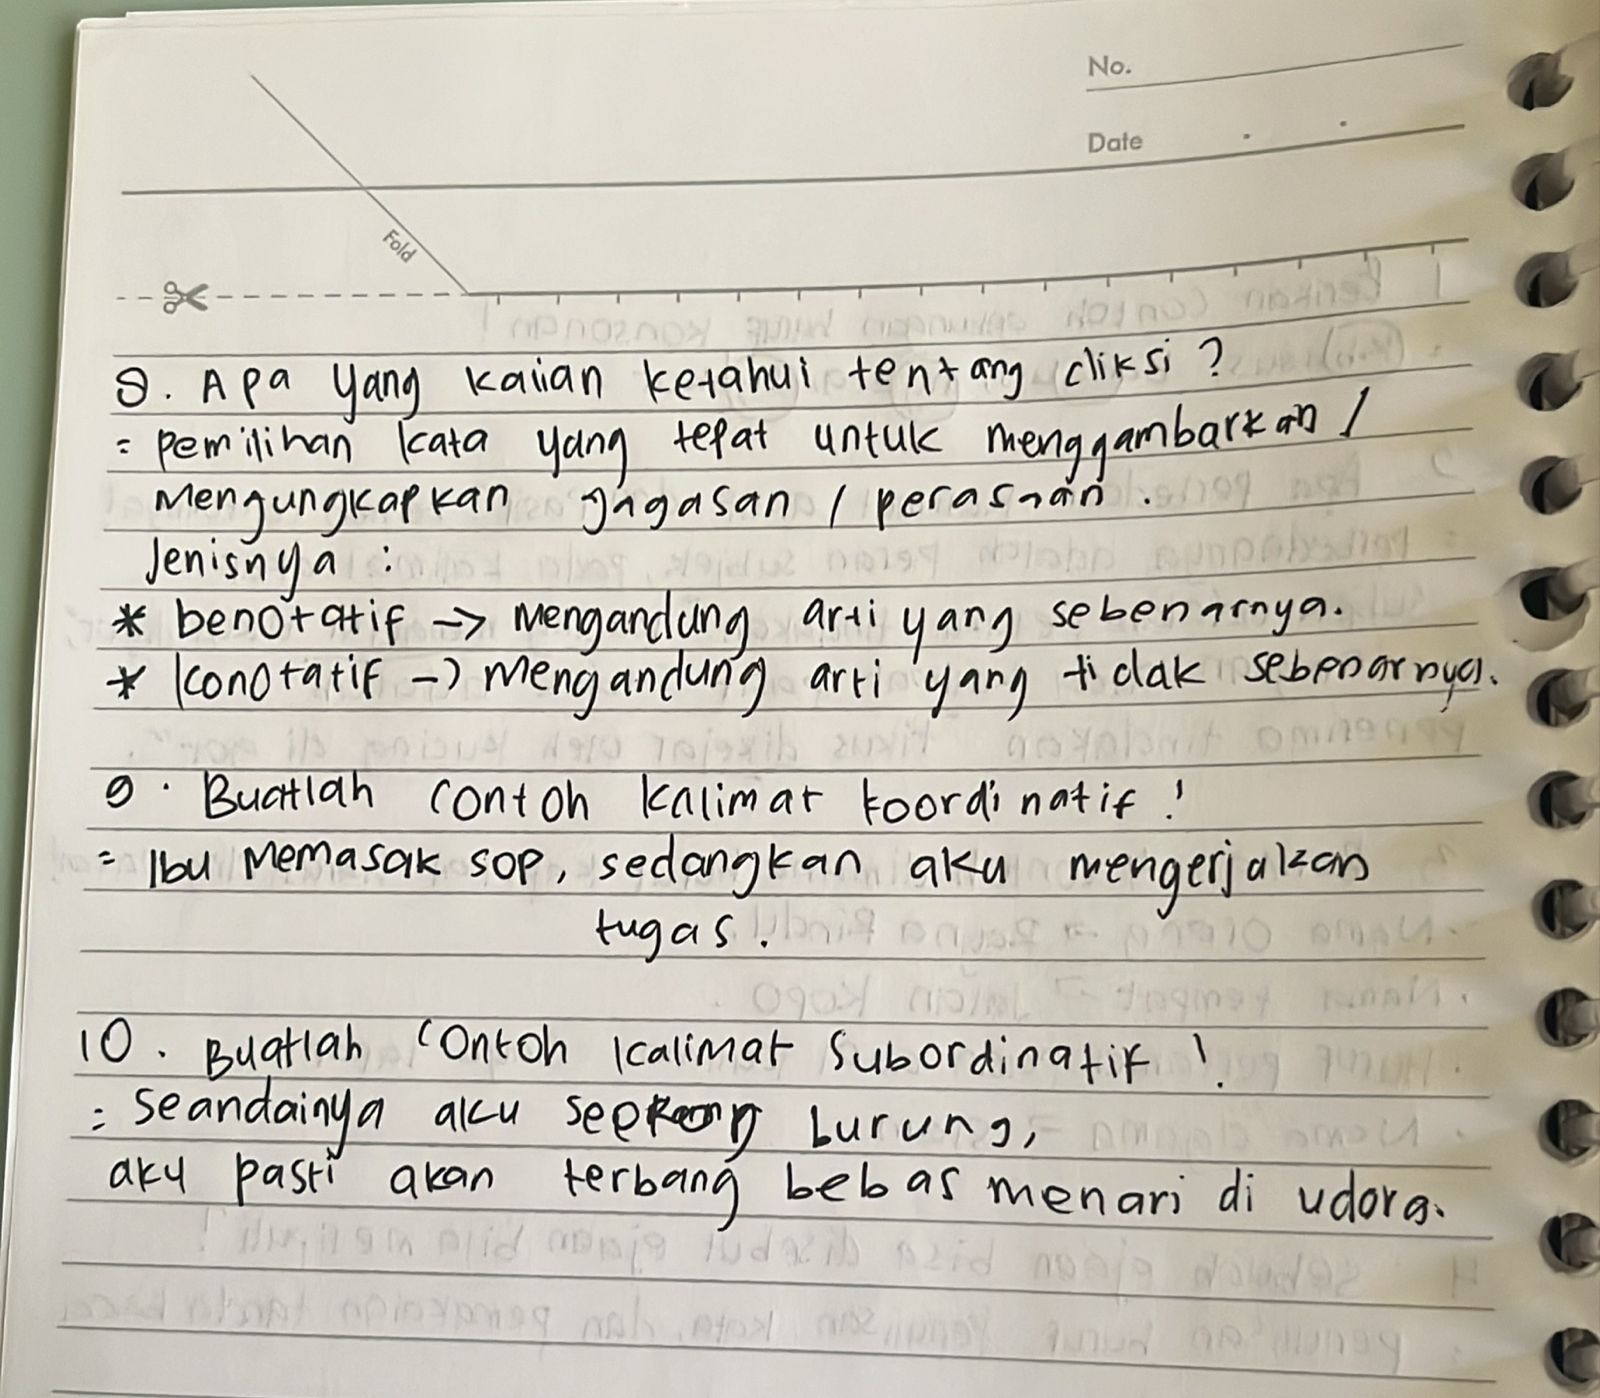 No.
Date
Fold
8. Apa yang kalian ketahui tentang diksi ?
= pemilihan kata yang tepat untuk menggambarkan /
mengungkapkan gagasan / perasaan .
Jenisnya :
* benotatif -> mengandung arti yang sebenarnya.
* konotatif -> mengandung arti yang tidak sebenarnya.
9. Buatlah contoh kalimat koordinatif !
= Ibu memasak sop, sedangkan aku mengerjakan
tugas.
10. Buatlah contoh kalimat subordinatif !
= seandainya aku burung,
aku pasti akan terbang bebas menari di udara.